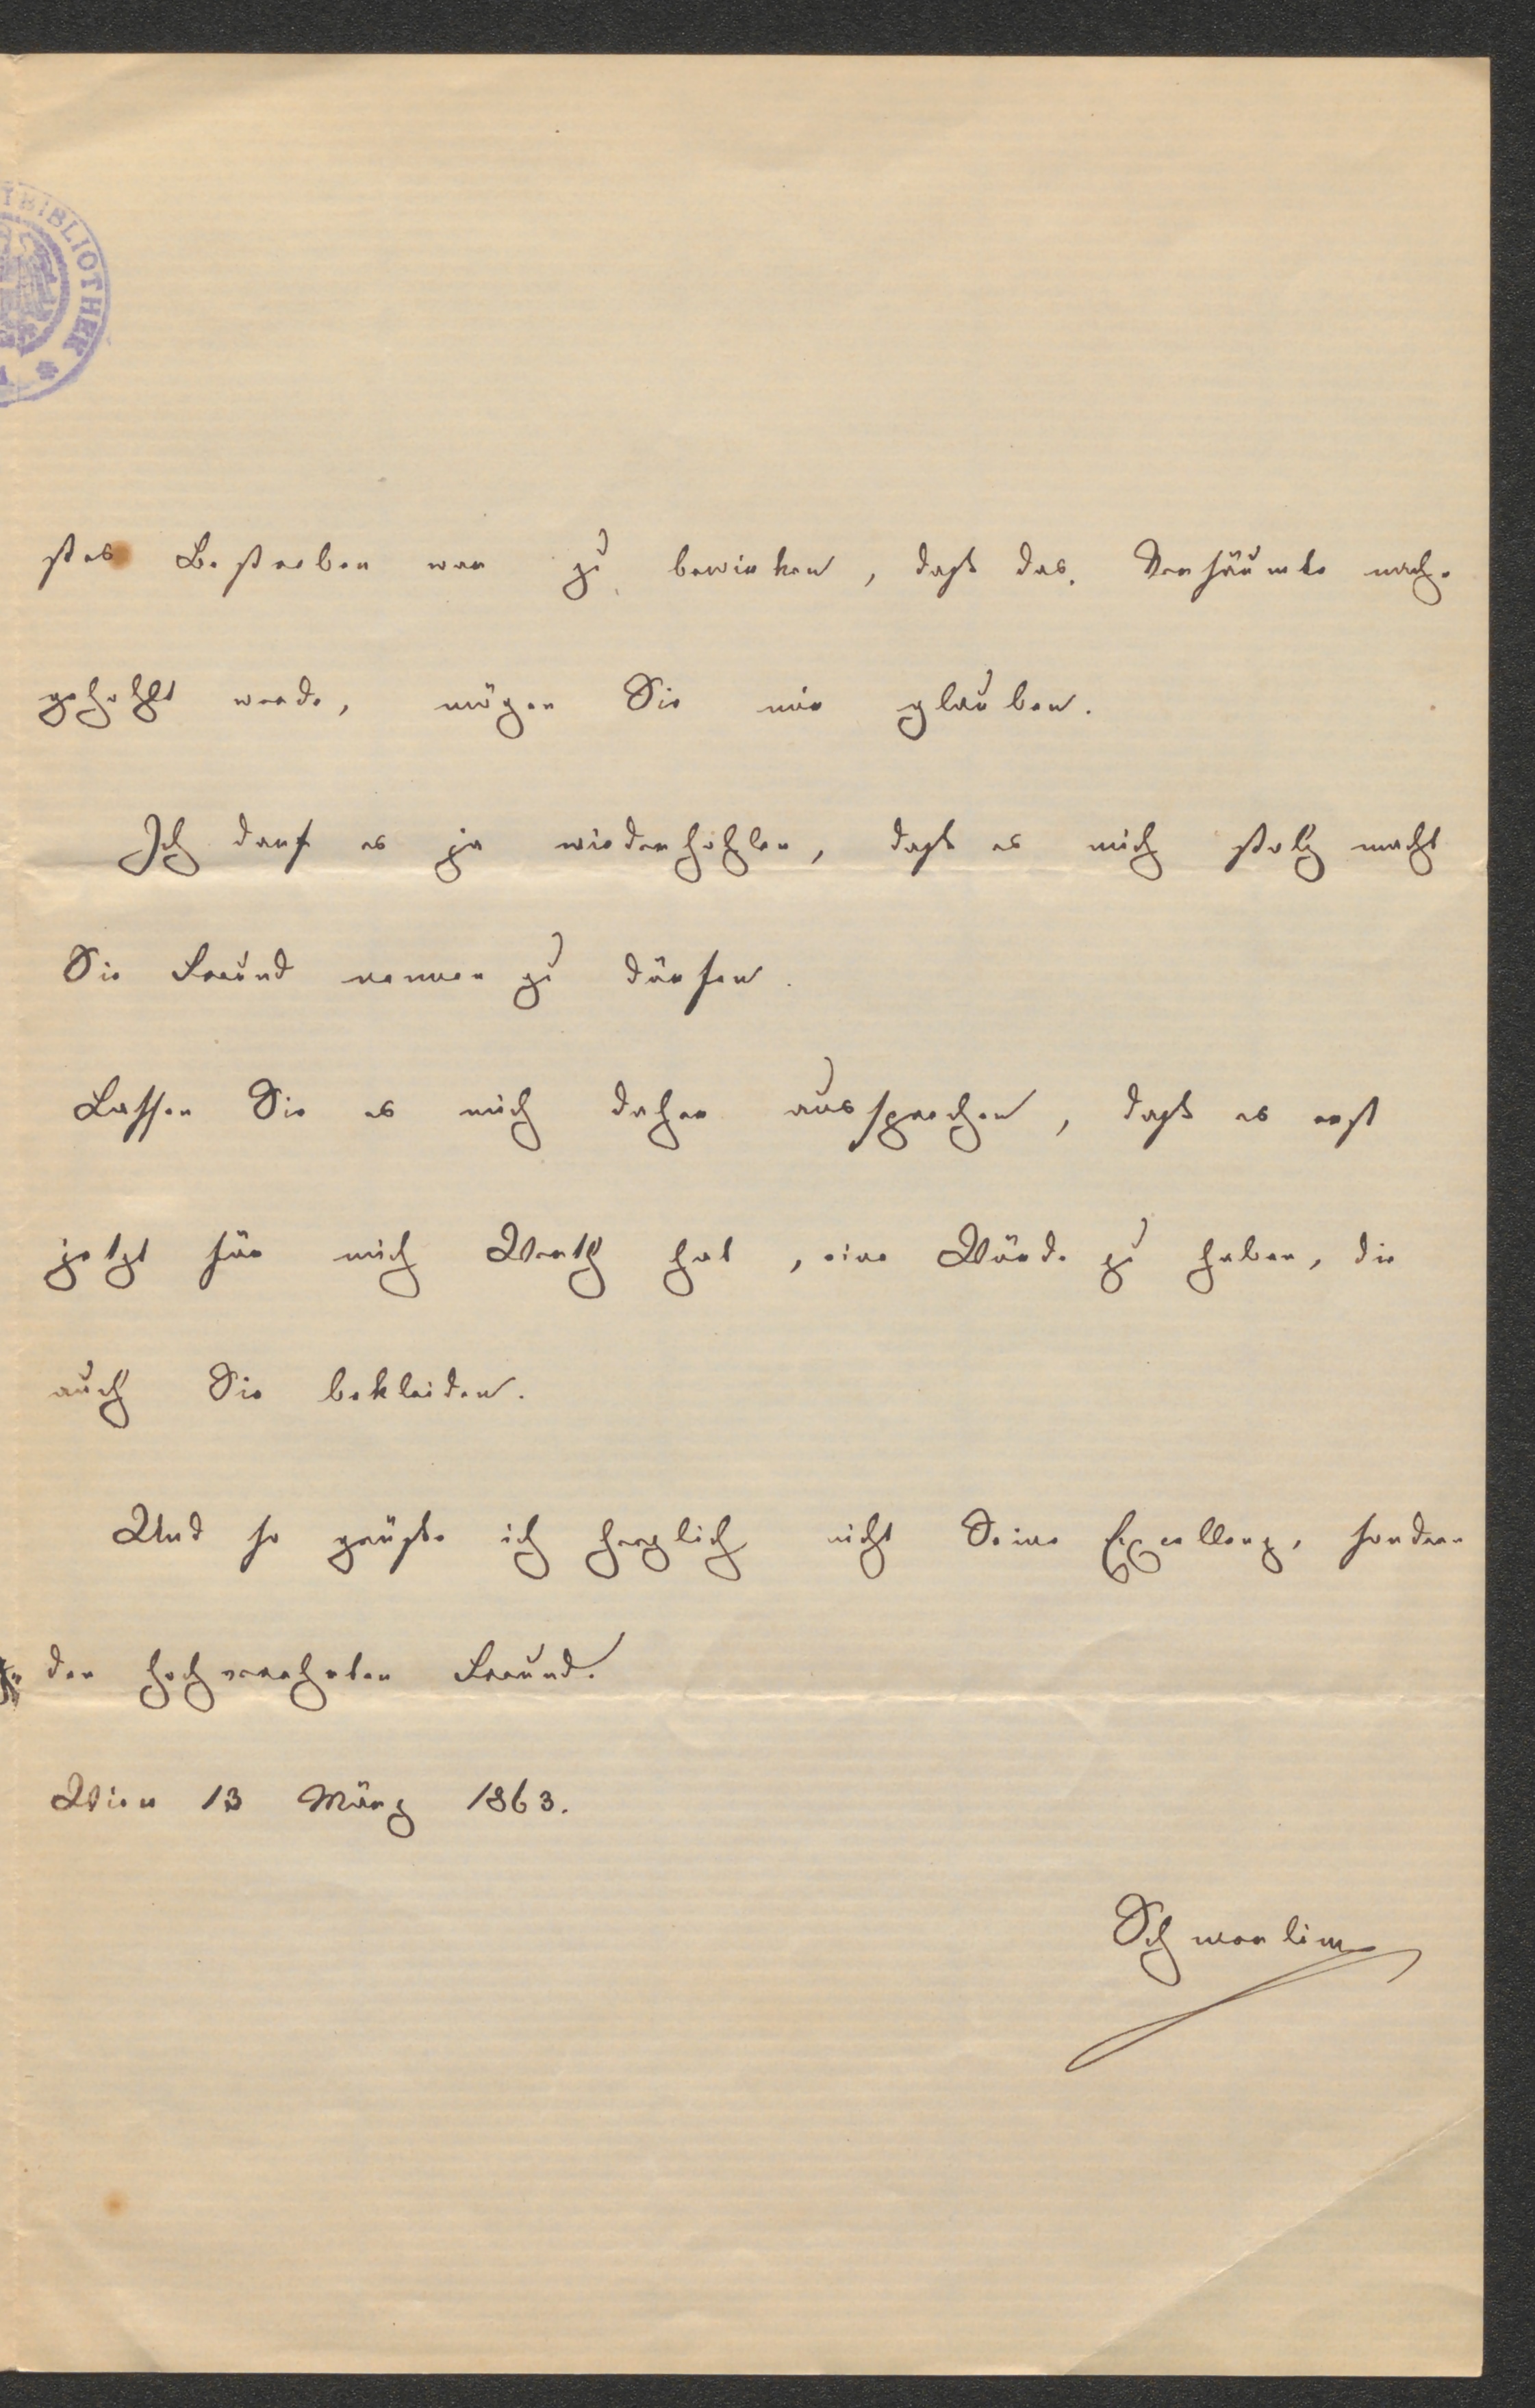 TBIBLIOTHEK
stes Bestreben war zu bewirken, daß das Versäumte nach-
gehohlt werde, mögen Sie mir glauben.
Ich darf es ja wiederhohlen, daß es mich stolz macht
Sie Freund nennen zu dürfen.
Lassen Sie es mich daher aussprechen, daß es erst
jetzt für mich Werth hat, eine Würde zu haben, die
auch Sie bekleiden.
Und so grüße ich herzlich nicht Seine Exzellenz, sondern
den hochverehrten Freund.
Wien 13 März 1863.
Schmerling